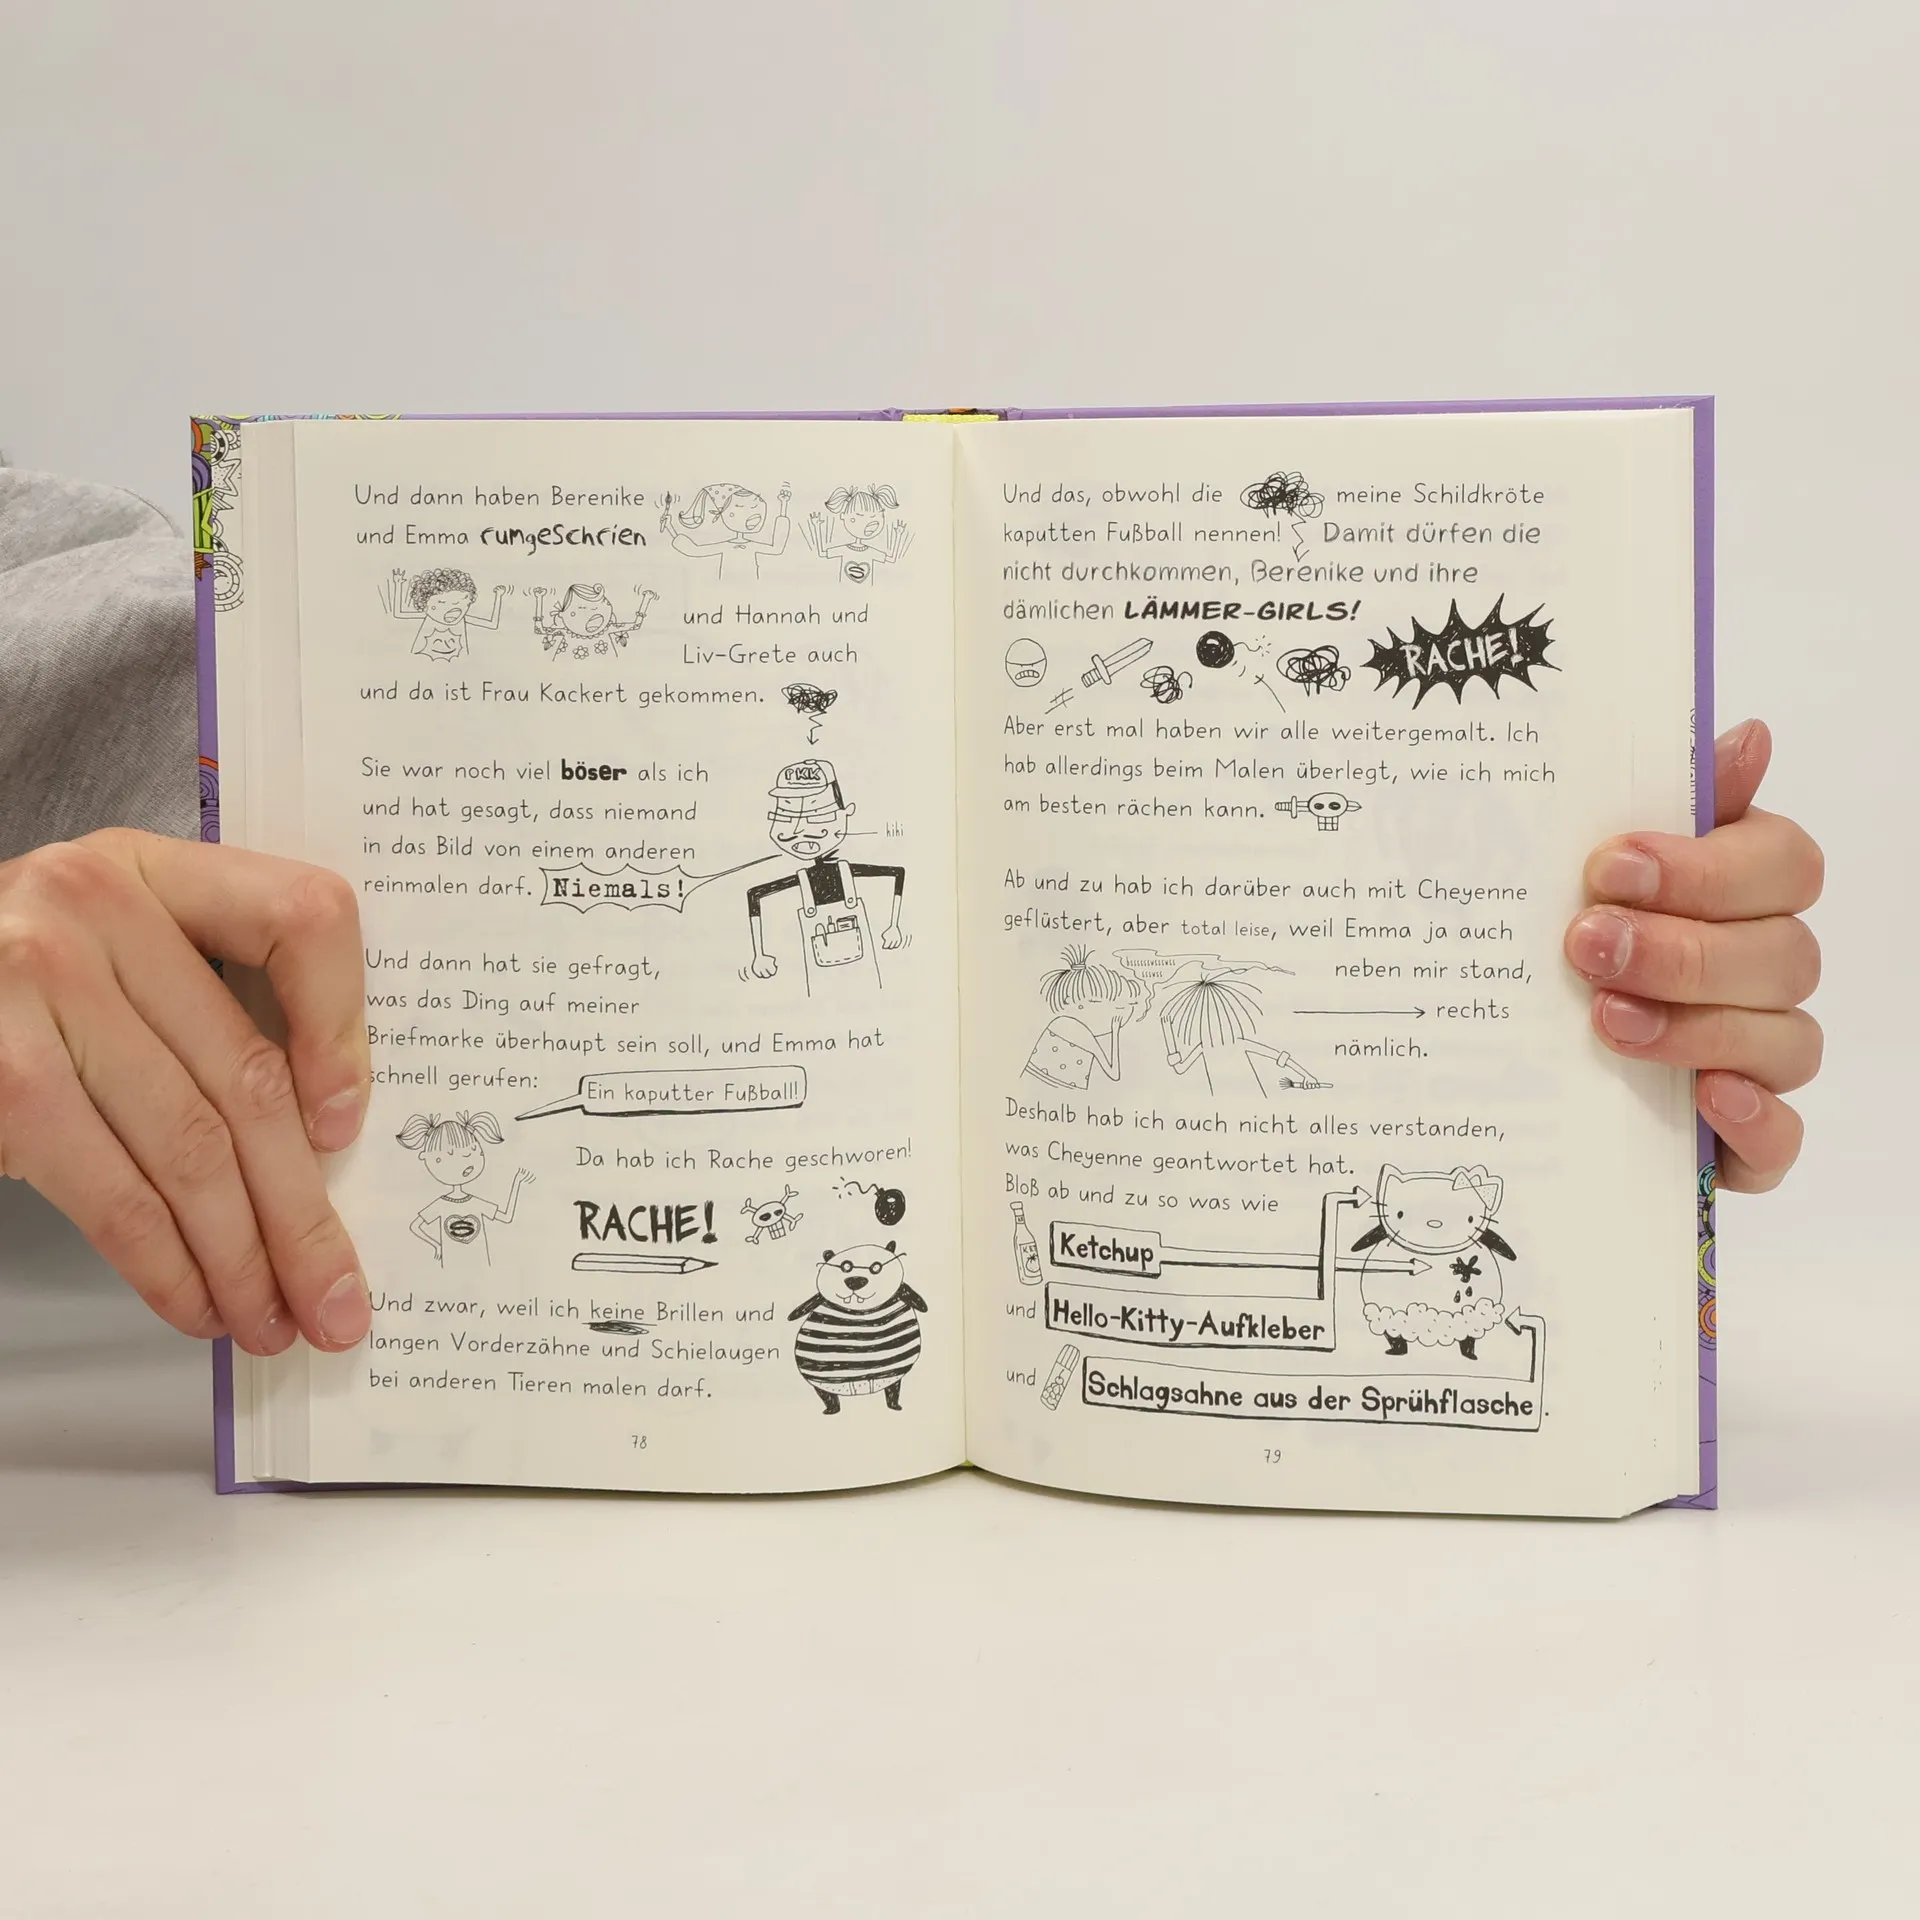 Und dann haben Berenike
und Emma rumgeschrien
und Hannah und
Liv-Grete auch
und da ist Frau Kackert gekommen.
Sie war noch viel böser als ich
und hat gesagt, dass niemand
in das Bild von einem anderen
reinmalen darf. Niemals!
PKK
hihi
Und dann hat sie gefragt,
was das Ding auf meiner
Briefmarke überhaupt sein soll, und Emma hat
schnell gerufen:
Ein kaputter Fußball!
Da hab ich Rache geschworen!
RACHE!
Und zwar, weil ich keine Brillen und
langen Vorderzähne und Schielaugen
bei anderen Tieren malen darf.
78
Und das, obwohl die meine Schildkröte
kaputten Fußball nennen! Damit dürfen die
nicht durchkommen, Berenike und ihre
dämlichen LÄMMER-GIRLS!
RACHE!
Aber erst mal haben wir alle weitergemalt. Ich
hab allerdings beim Malen überlegt, wie ich mich
am besten rächen kann.
Ab und zu hab ich darüber auch mit Cheyenne
geflüstert, aber total leise, weil Emma ja auch
neben mir stand,
rechts
nämlich.
Deshalb hab ich auch nicht alles verstanden,
was Cheyenne geantwortet hat.
Bloß ab und zu so was wie
Ketchup
und Hello-Kitty-Aufkleber
und Schlagsahne aus der Sprühflasche.
79